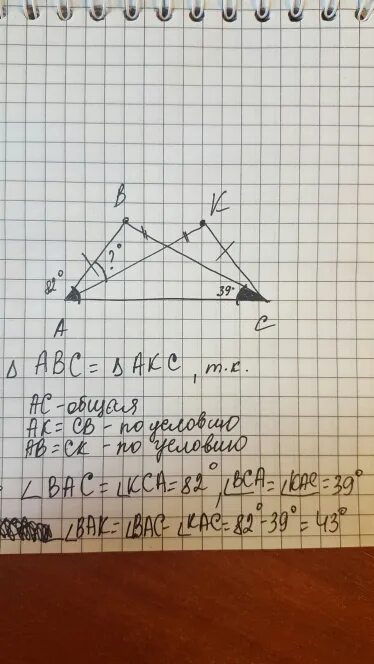 B K
82° ?° 39°
A C
Δ ABC = Δ AKC, т.к.
AC - общая
AK = CB - по условию
AB = CK - по условию
∠BAC = ∠KCA = 82°, ∠BCA = ∠KAC = 39°
∠BAK = ∠BAC - ∠KAC = 82° - 39° = 43°